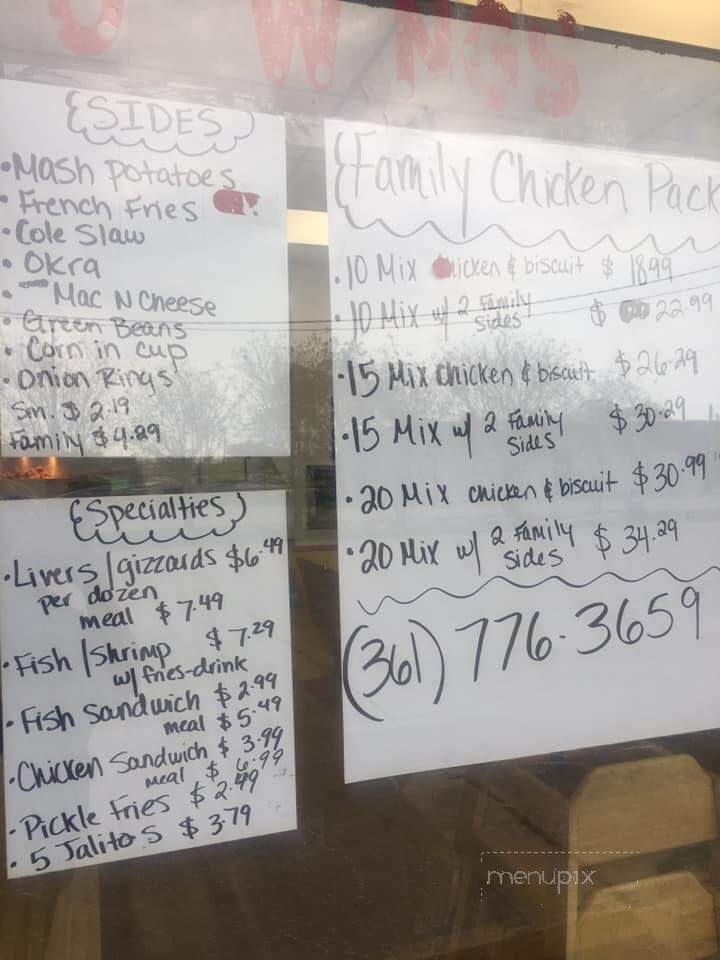 O W NGS
SIDES
• Mash potatoes
• French Fries
• Cole Slaw
• Okra
• Mac N Cheese
• Green Beans
• Corn in cup
• Onion Rings
Sm. $ 2.19
Family $ 4.29
Specialties
• Livers/gizzards $6.49
per dozen
meal $ 7.49
• Fish/Shrimp $ 7.29
w/ fries-drink
• Fish Sandwich $ 2.99
meal $ 5.49
• Chicken Sandwich $ 3.99
meal $ 6.99
• Pickle Fries $ 2.49
• 5 Jalitos $ 3.79
Family Chicken Pack
• 10 Mix chicken & biscuit $ 18.99
• 10 Mix w/ 2 Family Sides $ 22.99
• 15 Mix chicken & biscuit $ 26.29
• 15 Mix w/ 2 Family Sides $ 30.29
• 20 Mix chicken & biscuit $ 30.99
• 20 Mix w/ 2 Family Sides $ 34.29
(361) 776-3659
menupix